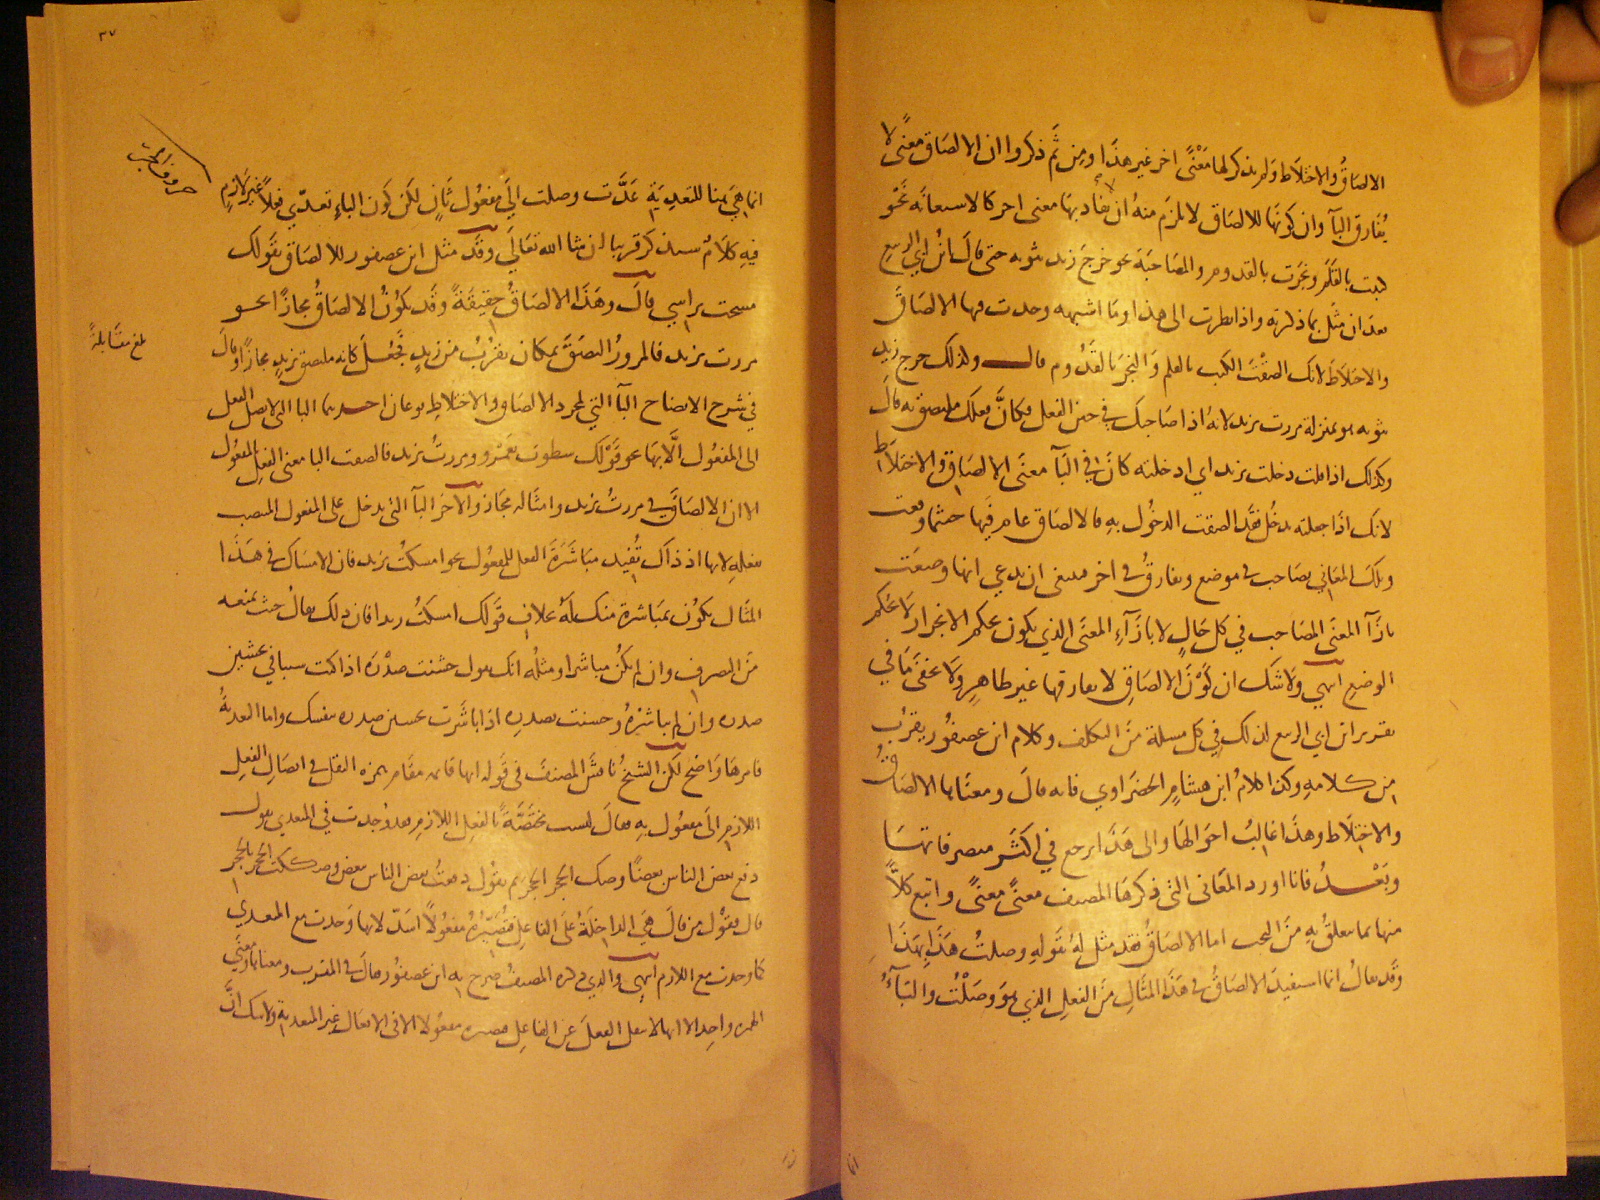 الالصاق والاختلاط ولم يذكر لها معنًى اخر غير هذا ومن ثَم ذكروا ان الالصاق معنًى لا
يُفارق البآ وان كونها للالصاق لا يلزم منه ان يفاد بها معنى اخر كالاستعانة نحو
كتبت بالقلم ونجرت بالقدوم والمصاحبة نحو خرج زيد بثوبه حتى قال ابن ابي الربيع
بعد ان مثل بما ذكرته واذا نظرت الى هذا وما اشبهه وجدت فيها الالصاق
والاختلاط لانك الصقت الكتب بالقلم والنجر بالقدوم قال ولذلك خرج زيد
بثوبه هو بمنزلة مررت بزيد لانه اذا صاحبك في حين الفعل فكانَّ فعلك ملتصق به قال
وكذلك اذا قلت دخلت بزيد اي ادخلته كان في البآ معنى الالصاق والاختلاط
لانك اذا جعلته يدخل فقد الصقت الدخول به فالالصاق عام فيها حيثما وقعت
وتلك المعاني تصاحب في موضع وتفارق في اخر فينبغي ان يدعي انها وضعت
بازآ المعنى المصاحب في كل حالٍ لا بازآء المعنى الذي يكون بحكم الانجرار لا بحكم
الوضع انتهى ولا شك ان كون الالصاق لا يفارقها غير ظاهر ولا يخفى ما في
تقرير ابن ابي الربيع لذلك في كل مسئلة من التكلف وكلام ابن عصفور يقرب
من كلامه وكذا كلام ابن هشام الخضراوي فانه قال ومعناها الالصاق
والاختلاط وهذا غالب احوالها والى هذا يرجع في اكثر متصرفاتها
وبعدُ فانا اورد المعاني التي ذكرها المصنف معنًى معنًى واتبع كلاًّ
منها بما يتعلق به من البحث اما الالصاق فقد مثل له بقوله وصلتُ هذا بهذا
وقد يقال انما استفيد الالصاق في هذا المثال من الفعل الذي هو وصلت والبآءُ
انما
٣٧
حروف الجر
انما هي هنا للتعدية عَدَّت وصلت الى مفعول ثانٍ لكن كون الباء تعدّي فعلاً غير لازم
فيه كلام سيذكر قريبا ان شا الله تعالى وقد مثل ابن عصفور للالصاق بقولك
مسحت براسي قال وهذا الالصاق حقيقة وقد يكون الالصاق مجازًا نحو
بلغ مقابلةً
مررت بزيد فالمرور التصق بمكان يقرب من زيدٍ فجُعل كانه ملتصق بزيدٍ مجازًا وقال
في شرح الايضاح البآ التي لمجرد الالصاق والاختلاط نوعان احدهما البا التي لا يصل الفعل
الى المفعول الَّا بها نحو قولك سطوت بعمرو ومررتُ بزيد فالصقت البا معنى الفعل بالمفعول
الا ان الالصاق في مررتُ بزيد وامثاله مجاز والاخر البآ التي تدخل على المفعول المنتصب
بفعله لانها اذ ذاك تُفيد مباشرة الفعل للمفعول نحو امسكتُ بزيد فان الامساك في هذا
المثال يكون بمباشرة منك له بخلاف قولك امسكتُ زيدا فان ذلك يقال حيث تمنعه
من التصرف وان لم يكن مباشرا ومثله انك تقول خشنت صدره اذا كنت سببا في تخشين
صدره وان لم تباشره وخشنت بصدره اذا باشرت تخشين صدره بنفسك واما التعديةُ
فامرها واضح لكن الشيخ نا مثل المصنف في قوله انها قائمة مقام همزه النقل في ايصال الفعل
اللازم الى مفعول به فقال ليست مختصَّةً بالفعل اللازم فقد وُجدت في المتعدي تقول
دفع بعض الناس بعضًا وصك الحجر الحجر ثم تقول دفعتُ بعض الناس ببعض وصككت الحجر بالحجر
قال فقول من قال هي الداخلة على الفاعل فتُصيِّره مفعولاً اسَدّ لانها وجدت مع المتعدي
كما وجدت مع اللازم انتهى والذي ذكره المصنف صرح به ابن عصفور فقال في المقرب ومعناها ومعنى
الهمزه واحد الا انها لا تنقل الفعل عن الفاعل فتصيره مفعولا الا في الافعال غير المتعدية ولا شك انَّ